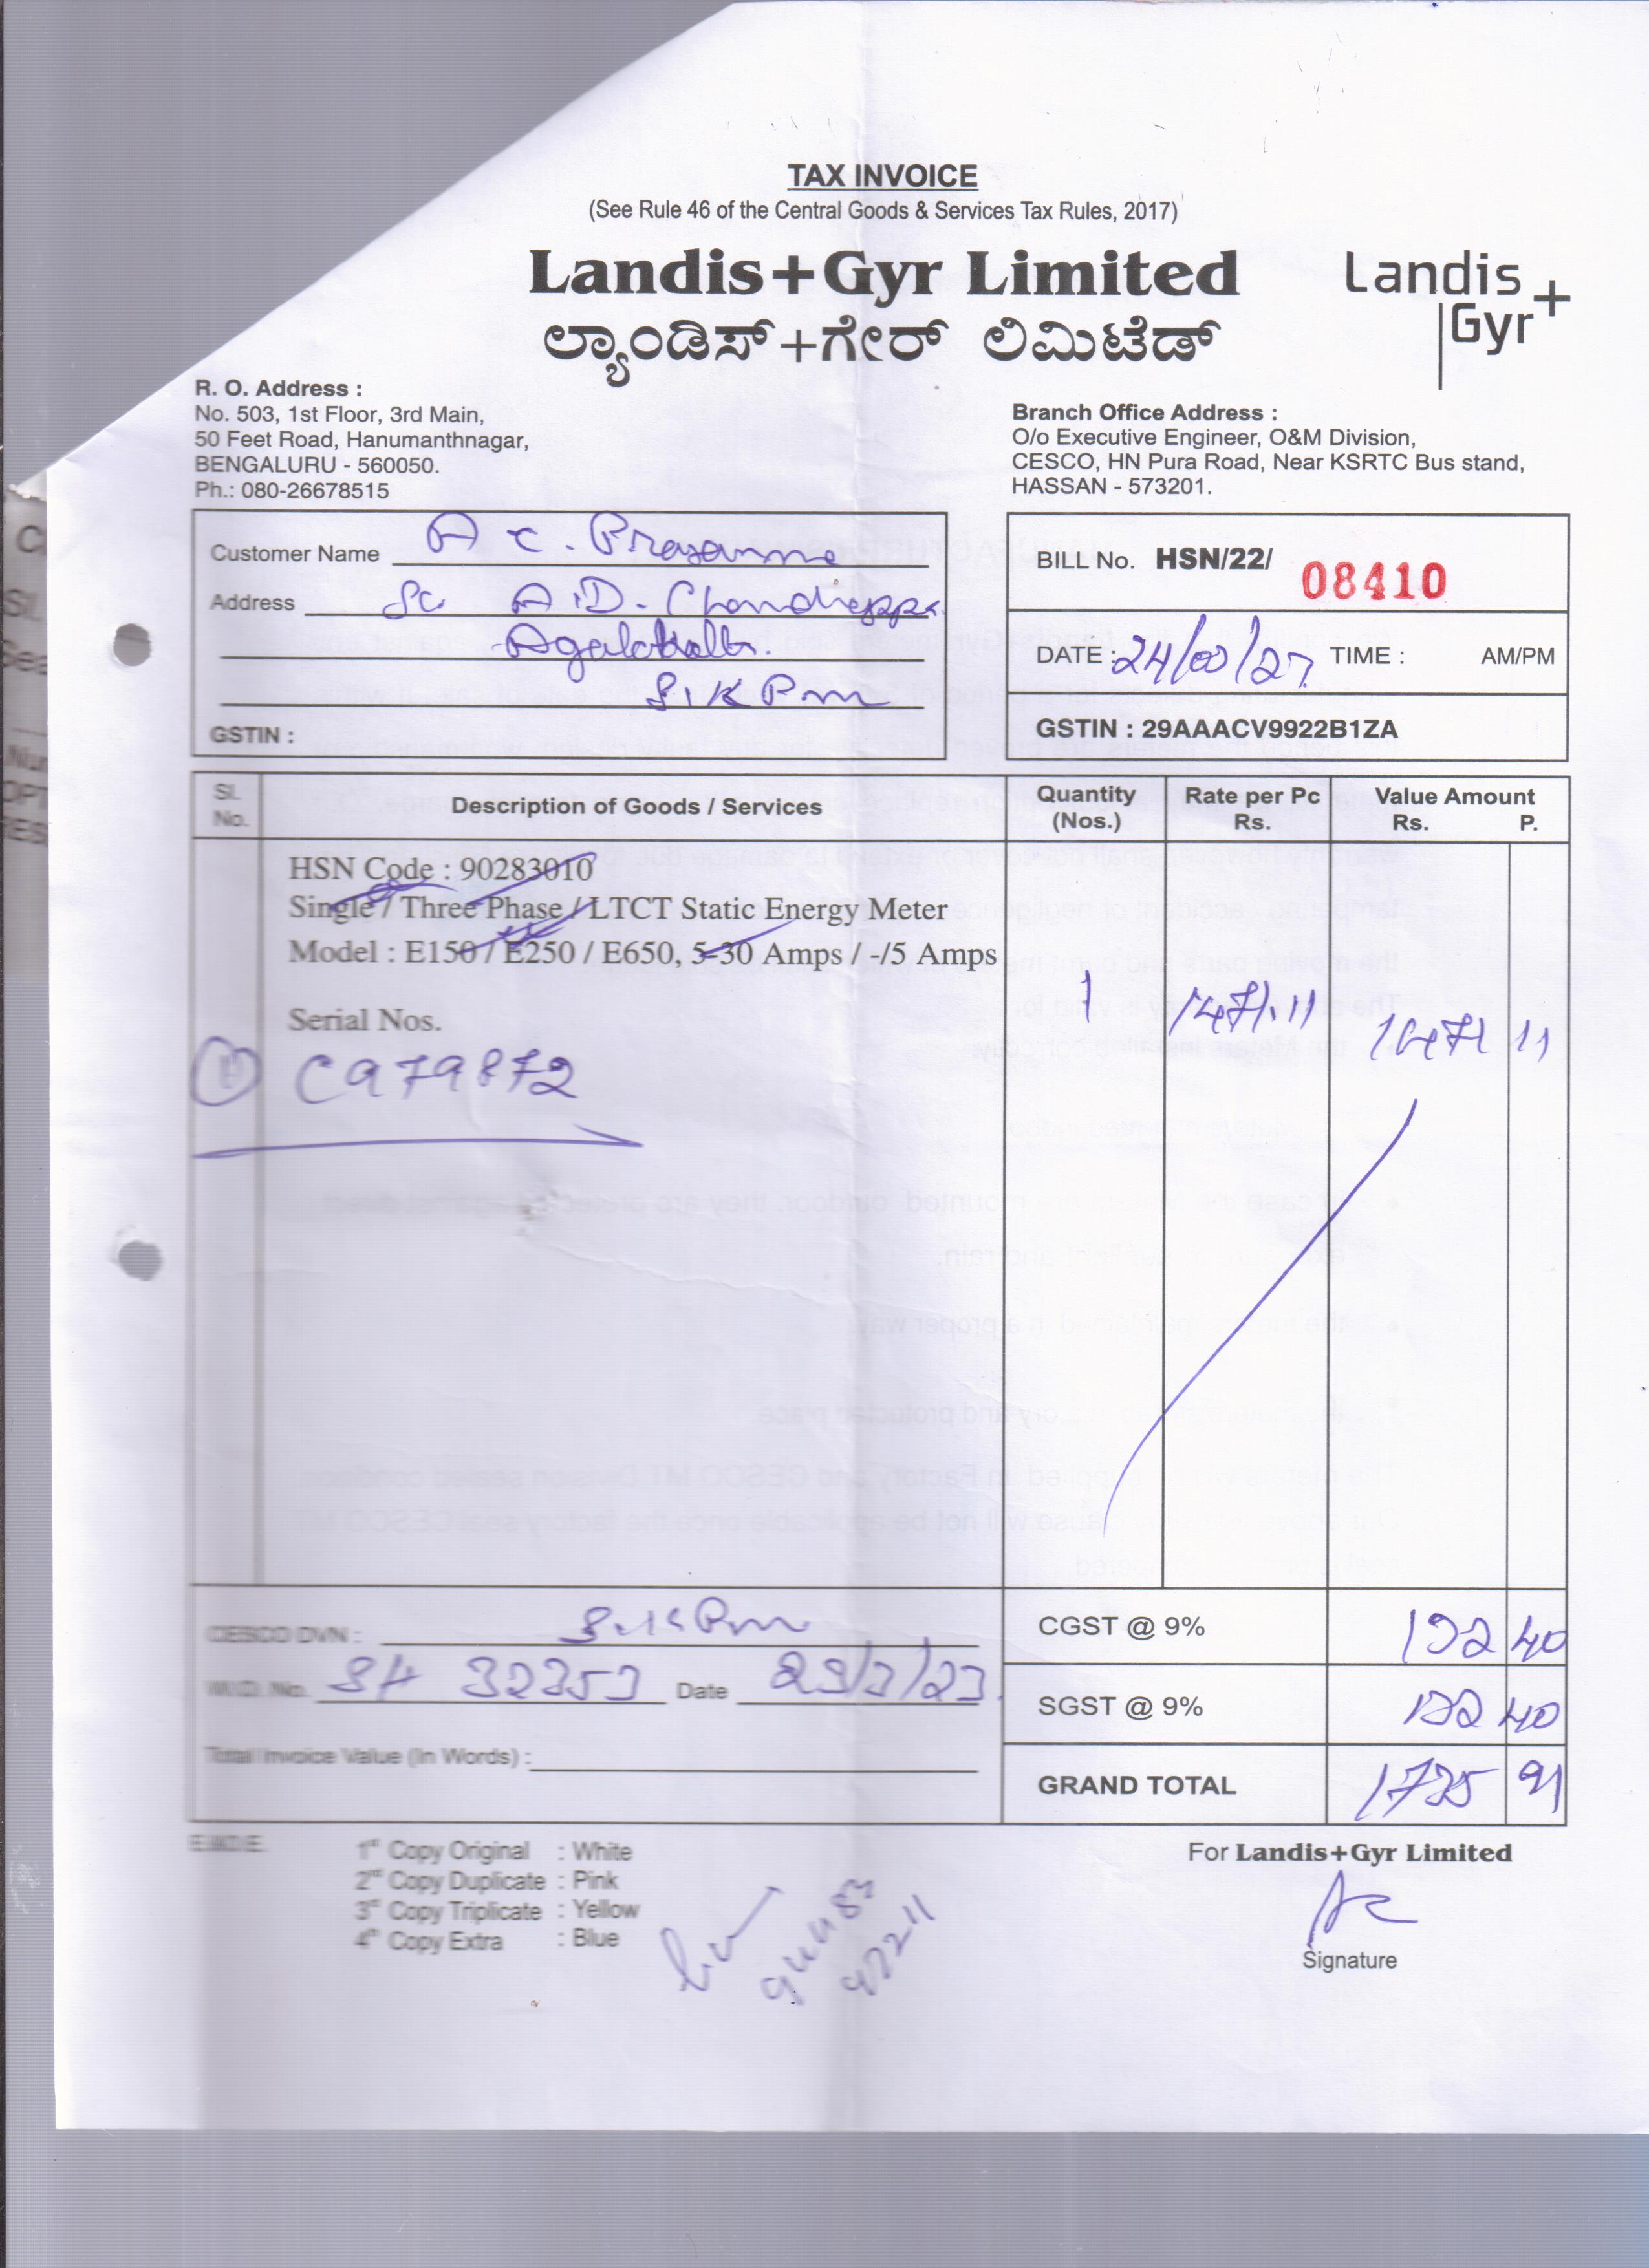 TAX INVOICE
(See Rule 46 of the Central Goods & Services Tax Rules, 2017)
Landis+Gyr Limited
ಲ್ಯಾಂಡಿಸ್+ಗೇರ್ ಲಿಮಿಟೆಡ್
Landis
Gyr+
R. O. Address :
No. 503, 1st Floor, 3rd Main,
50 Feet Road, Hanumanthnagar,
BENGALURU - 560050.
Ph.: 080-26678515
Branch Office Address :
O/o Executive Engineer, O&M Division,
CESCO, HN Pura Road, Near KSRTC Bus stand,
HASSAN - 573201.
Customer Name A C. Prasanna
Address A.D. Chandrappa
S.K Pm
GSTIN :
BILL No. HSN/22/ 08410
DATE : TIME : AM/PM
GSTIN : 29AAACV9922B1ZA
Sl. No. Description of Goods / Services Quantity (Nos.) Rate per Pc Rs. Value Amount Rs. P.
HSN Code : 90283010
Single / Three Phase / LTCT Static Energy Meter
Model : E150 / E250 / E650, 5-30 Amps / -/5 Amps
1 1471.11 1471 11
Serial Nos.
1 C979872
CESCO DVN : S.K Pm
W.O. No. Date 23/3/23
Total Invoice Value (In Words) :
CGST @ 9% 132 40
SGST @ 9% 132 40
GRAND TOTAL 1735 91
E.&O.E.
1st Copy Original : White
2nd Copy Duplicate : Pink
3rd Copy Triplicate : Yellow
4th Copy Extra : Blue
For Landis+Gyr Limited
Signature